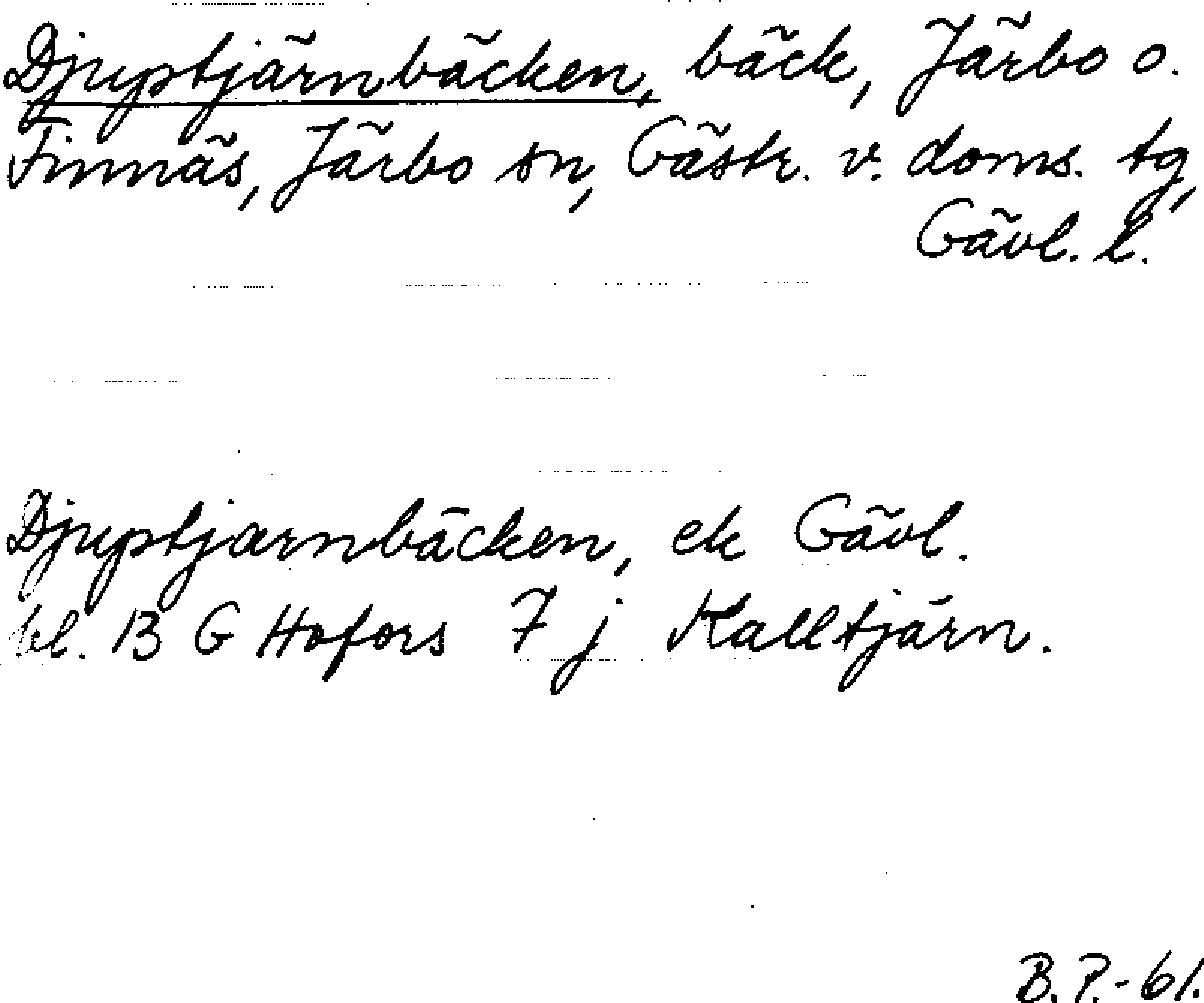 Djuptjärnbäcken, bäck, Järbo o.
Finnäs, Järbo sn, Gästr. v. doms. tg,
Gävl. l.
Djuptjarnbäcken, ek Gävl.
bl. 13 G Hofors 7 j Kalltjärn.
B.P.-61.